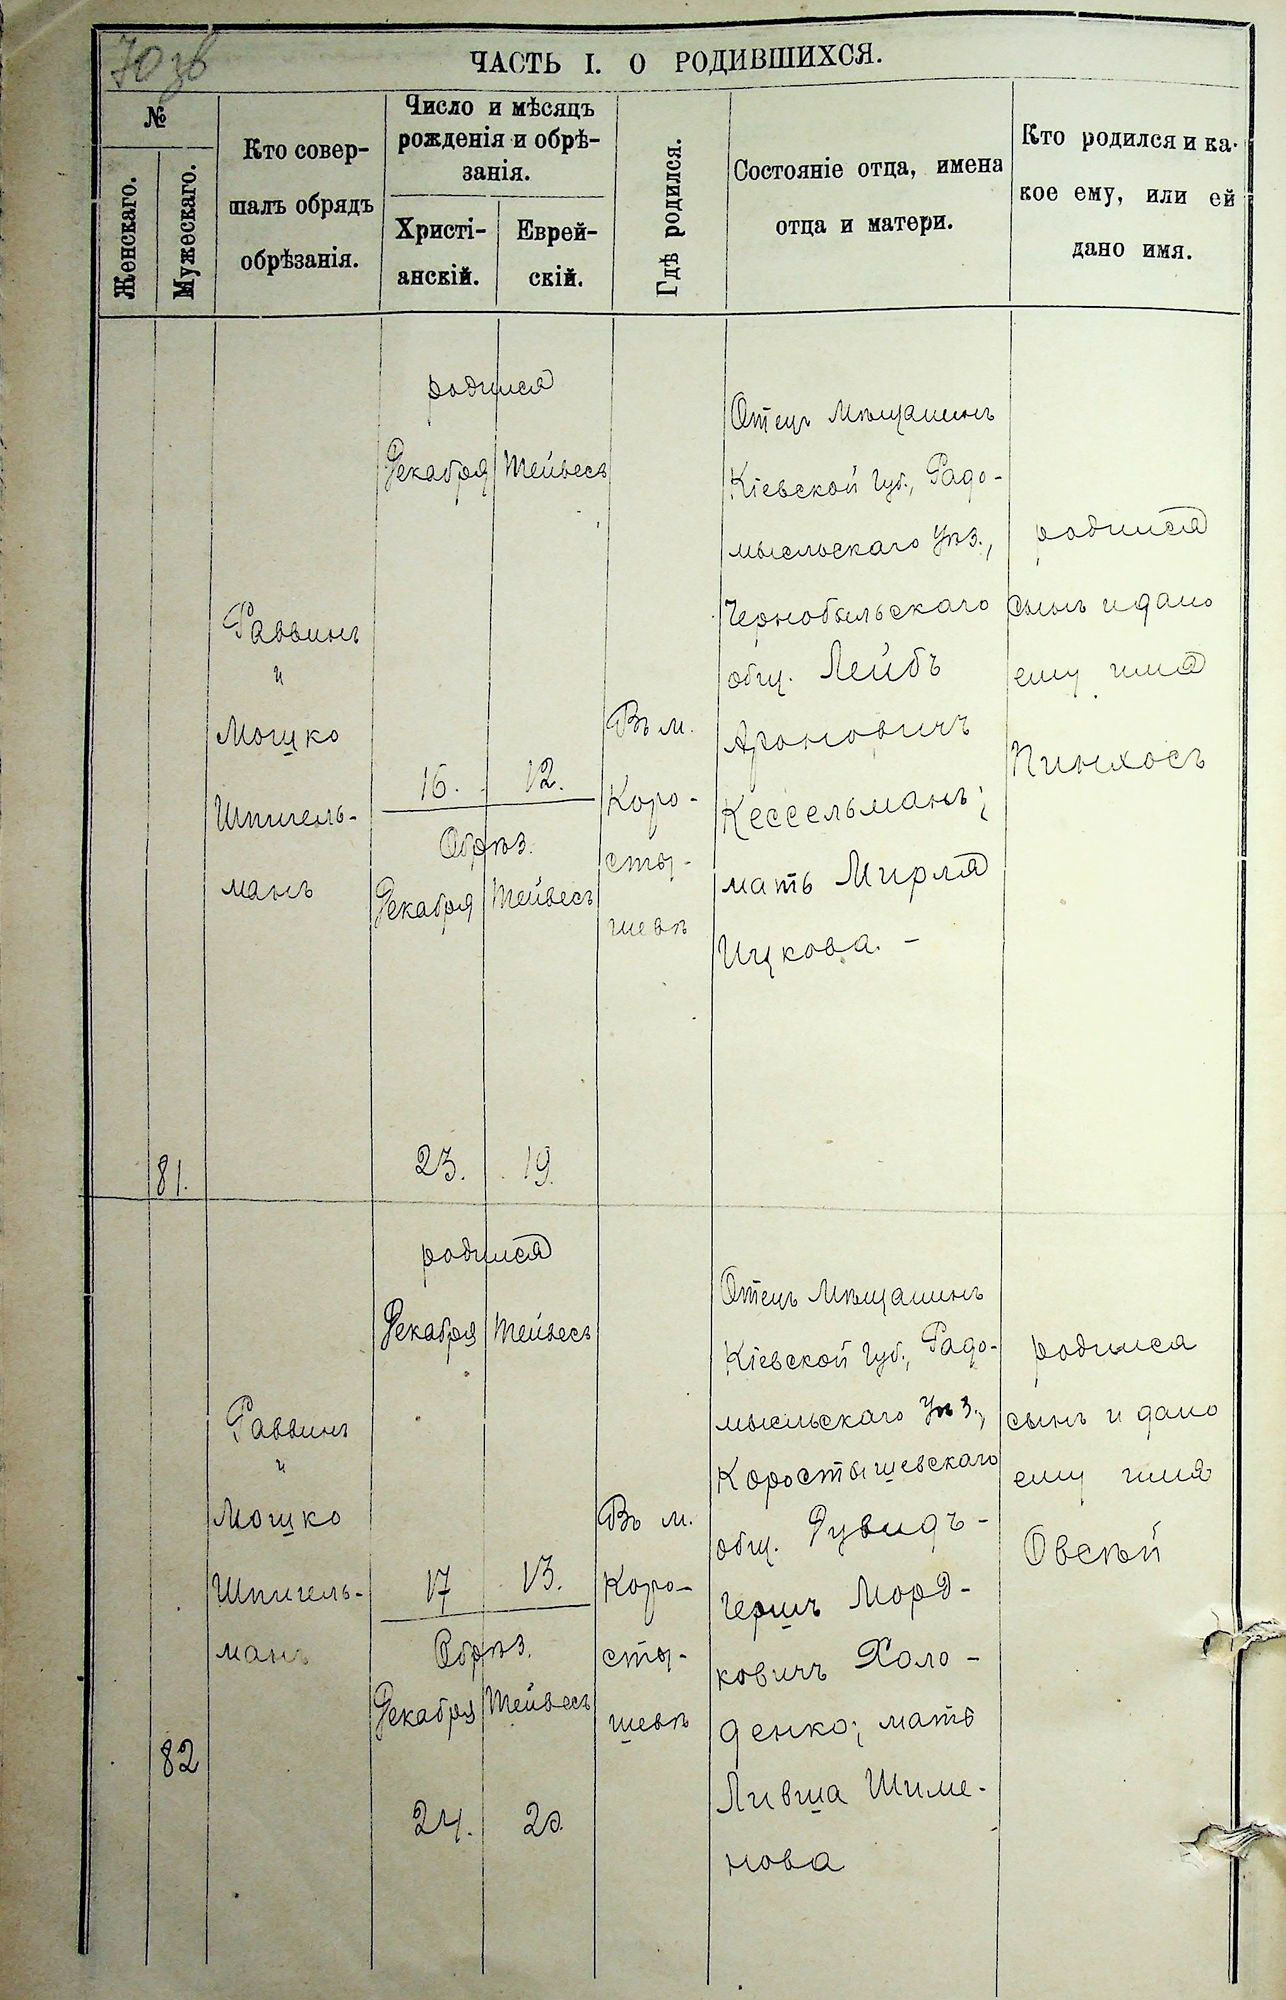 70 зв
ЧАСТЬ I. О РОДИВШИХСЯ.
№
Женскаго.
Мужескаго.
Кто совер-
шалъ обрядъ
обрѣзанія.
Число и мѣсяцъ
рожденія и обрѣ-
занія.
Христі-
анскій.
Еврей-
скій.
Гдѣ родился.
Состояніе отца, имена
отца и матери.
Кто родился и ка-
кое ему, или ей
дано имя.
81.
Раввинъ
и
Мошко
Шпигель-
манъ
родился
Декабря Тейвесъ
16. 12.
Обрѣз.
Декабря Тейвесъ
23. 19.
Въ м.
Коро-
сты-
шевѣ
Отецъ Мѣщанинъ
Кіевской губ., Радо-
мысльскаго Уѣз.,
Чернобыльскаго
общ. Лейбъ
Ароновичъ
Кессельманъ;
мать Мирля
Ицкова. -
родился
сынъ и дано
ему имя
Пинхосъ
82
Раввинъ
и
Мошко
Шпигель-
манъ
родился
Декабря Тейвесъ
17 13.
Обрѣз.
Декабря Тейвесъ
24. 20.
Въ м.
Коро-
сты-
шевѣ
Отецъ Мѣщанинъ
Кіевской губ., Радо-
мысльскаго Уѣз.,
Коростышевскаго
общ. Дувидъ-
Гершъ Морд-
ковичъ Холо-
денко; мать
Ливша Шиме-
нова
родился
сынъ и дано
ему имя
Овсѣй